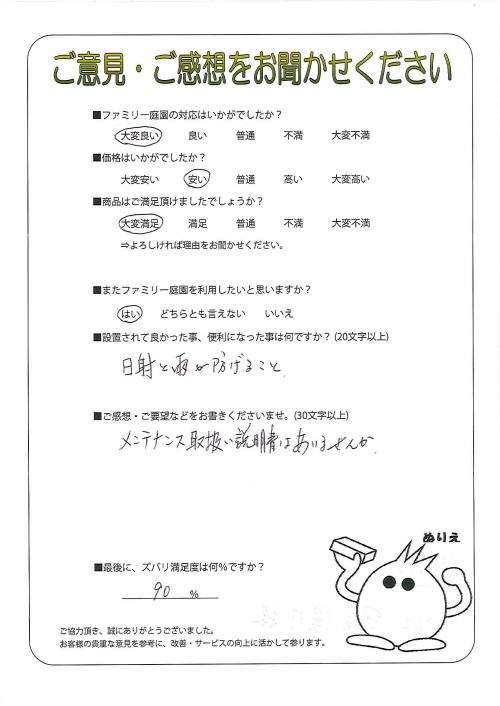 ご意見・ご感想をお聞かせください
■ファミリー庭園の対応はいかがでしたか?
大変良い 良い 普通 不満 大変不満
■価格はいかがでしたか?
大変安い 安い 普通 高い 大変高い
■商品はご満足頂けましたでしょうか?
大変満足 満足 普通 不満 大変不満
⇒よろしければ理由をお聞かせください。
■またファミリー庭園を利用したいと思いますか?
はい どちらとも言えない いいえ
■設置されて良かった事、便利になった事は何ですか? (20文字以上)
日射と雨が防げること.
■ご感想・ご要望などをお書きくださいませ。(30文字以上)
メンテナンス取扱い説明書はありませんか.
ぬりえ
■最後に、ズバリ満足度は何%ですか?
90 %
ご協力頂き、誠にありがとうございました。
お客様の貴重な意見を参考に、改善・サービスの向上に活かして参ります。